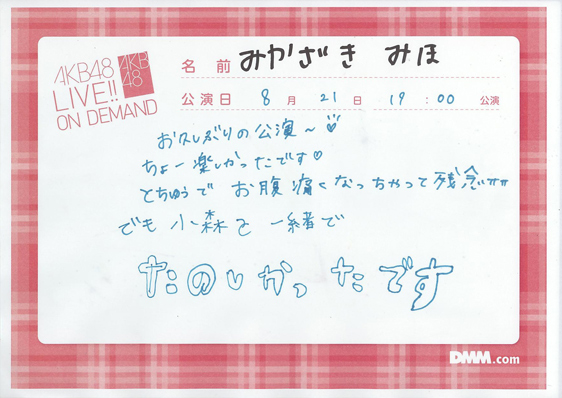 AKB48
LIVE!!
ON DEMAND
AKB
48
名 前 みやざき みほ
公演日 8 月 21 日 19 : 00 公演
お久しぶりの公演~
ちょー楽しかったです♡
とちゅうで お腹痛くなっちゃって残念
でも 小森と 一緒で
たのしかったです
DMM.com